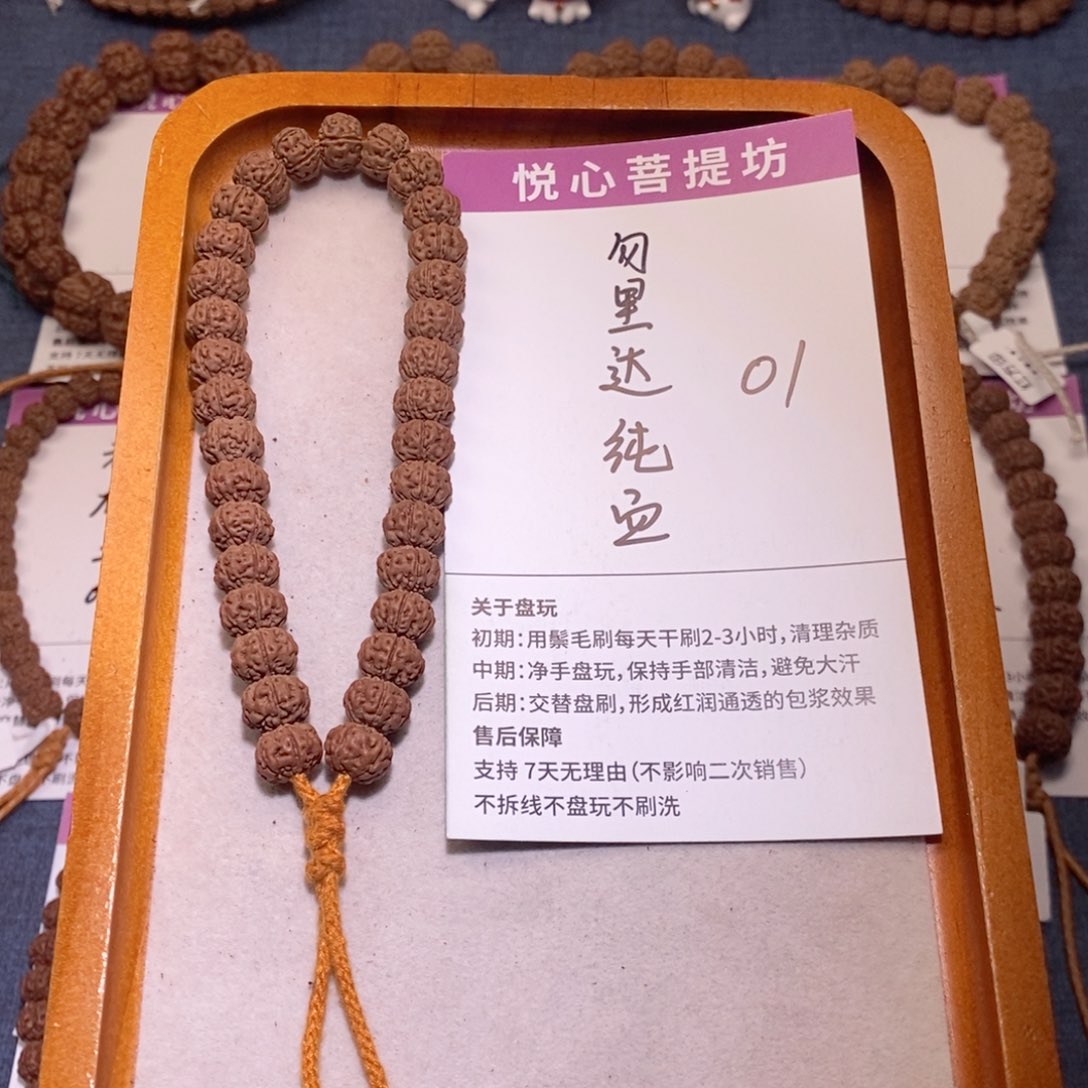 悦心菩提坊
勿里达纯血
01
关于盘玩
初期：用鬃毛刷每天干刷2-3小时，清理杂质
中期：净手盘玩，保持手部清洁，避免大汗
后期：交替盘刷，形成红润通透的包浆效果
售后保障
支持 7天无理由（不影响二次销售）
不拆线不盘玩不刷洗